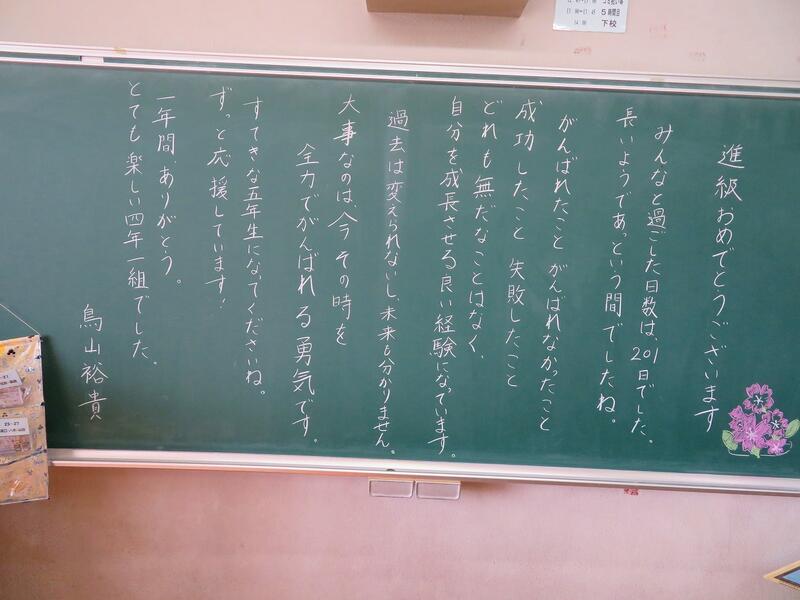 進級おめでとうございます
みんなと過ごした日数は、201日でした。
長いようであっという間でしたね。
がんばれたこと がんばれなかったこと
成功したこと 失敗したこと
どれも無だなことはなく、
自分を成長させる良い経験になっています。
過去は変えられないし、未来も分かりません。
大事なのは、今 その時を
全力でがんばれる勇気です。
すてきな五年生になってくださいね。
ずっと応援しています！
一年間、ありがとう。
とても楽しい四年一組でした。
鳥山裕貴
5時間目
下校